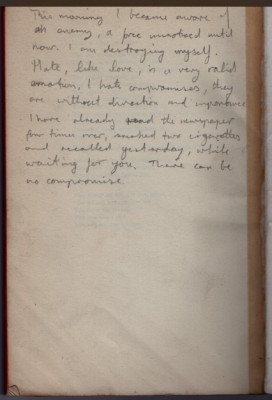 This morning I became aware of
an enemy, a force unnoticed until
now. I am destroying myself.
Hate, like love, is a very valid
emotion. I hate compromises, they
are without direction and importance
I have already read the newspaper
four times over, smoked two cigarettes
and recalled yesterday, while
waiting for you. There can be
no compromise